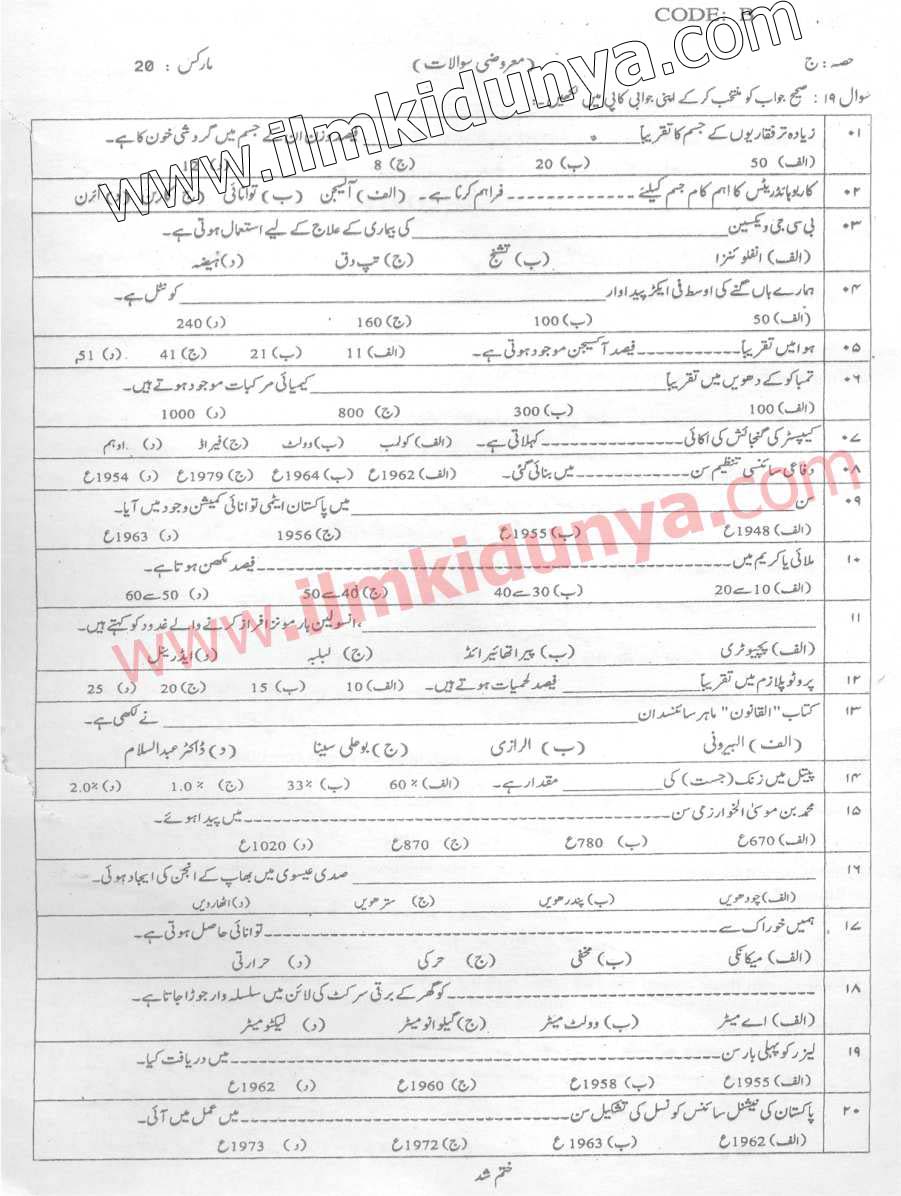 CODE: B
حصہ : ج (معروضی سوالات) مارکس : 20
سوال ۱۹ : صحیح جواب کو منتخب کرکے اپنی جوابی کاپی میں لکھیں۔:
۰۱ زیادہ تر فقاریوں کے جسم کا تقریباً ____________ فیصد وزن ان کے جسم میں گردشی خون کا ہے۔
(الف) 50 (ب) 20 (ج) 8 (د) 12
۰۲ کاربوہائڈریٹس کا اہم کام جسم کیلئے ------------- فراہم کرنا ہے۔ (الف) آکسیجن (ب) توانائی (ج) (د) آئرن
۰۳ بی سی جی ویکسین ____________ کی بیماری کے علاج کے لیے استعمال ہوتی ہے۔
(الف) انفلوئنزا (ب) تشنج (ج) تپ دق (د) ہیضہ
۰۴ ہمارے ہاں گنے کی اوسط فی ایکڑ پیداوار ____________ کونٹل ہے۔
(الف) 50 (ب) 100 (ج) 160 (د) 240
۰۵ ہوا میں تقریباً ----------- فیصد آکسیجن موجود ہوتی ہے۔ (الف) 11 (ب) 21 (ج) 41 (د) 51
۰۶ تمباکو کے دھویں میں تقریباً ____________ کیمیائی مرکبات موجود ہوتے ہیں۔
(الف) 100 (ب) 300 (ج) 800 (د) 1000
۰۷ کیپسٹر کی گنجائش کی اکائی -------------- کہلاتی ہے۔ (الف) کولب (ب) وولٹ (ج) فیراڈ (د) اوہم
۰۸ دفاعی سائنسی تنظیم سن ------------ میں بنائی گئی۔ (الف) 1962ع (ب) 1964ع (ج) 1979ع (د) 1954ع
۰۹ سن ____________ میں پاکستان ایٹمی توانائی کمیشن وجود میں آیا۔
(الف) 1948ع (ب) 1955ع (ج) 1956 (د) 1963ع
۱۰ ملائی یا کریم میں ------------------ فیصد مکھن ہوتا ہے۔
(الف) 10 سے 20 (ب) 30 سے 40 (ج) 40 سے 50 (د) 50 سے 60
۱۱ ____________ ،انسولین ہارمونز افراز کرنے والے غدود کو کہتے ہیں۔
(الف) پچیوٹری (ب) پیراتھائیرائڈ (ج) لبلبہ (د) ایڈرینل
۱۲ پروٹوپلازم میں تقریباً ____________ فیصد لحمیات ہوتے ہیں۔ (الف) 10 (ب) 15 (ج) 20 (د) 25
۱۳ کتاب "القانون" ماہر سائنسدان ____________ نے لکھی ہے۔
(الف) البیرونی (ب) الرازی (ج) بوعلی سینا (د) ڈاکٹر عبدالسلام
۱۴ پیتل میں زنک (جست) کی ________ مقدار ہے۔ (الف) 60% (ب) 33% (ج) 1.0% (د) 2.0%
۱۵ محمد بن موسیٰ الخوارزمی سن ------------------ میں پیدا ہوئے۔
(الف) 670ع (ب) 780ع (ج) 870ع (د) 1020ع
۱۶ ____________ صدی عیسوی میں بھاپ کے انجن کی ایجاد ہوئی۔
(الف) چودھویں (ب) پندرھویں (ج) سترھویں (د) اٹھارویں
۱۷ ہمیں خوراک سے ------------------ توانائی حاصل ہوتی ہے۔
(الف) میکانکی (ب) مخفی (ج) حرکی (د) حرارتی
۱۸ ------------------ کو گھر کے برقی سرکٹ کی لائن میں سلسلہ وار جوڑا جاتا ہے۔
(الف) اے میٹر (ب) وولٹ میٹر (ج) گیلوانومیٹر (د) لیکٹومیٹر
۱۹ لیزر کو پہلی بار سن ------------------ میں دریافت کیا۔
(الف) 1955ع (ب) 1958ع (ج) 1960ع (د) 1962ع
۲۰ پاکستان کی نیشنل سائنس کونسل کی تشکیل سن ------------------ میں عمل میں آئی۔
(الف) 1962ع (ب) 1963ع (ج) 1972ع (د) 1973ع
ختم شد
www.ilmkidunya.com
www.ilmkidunya.com